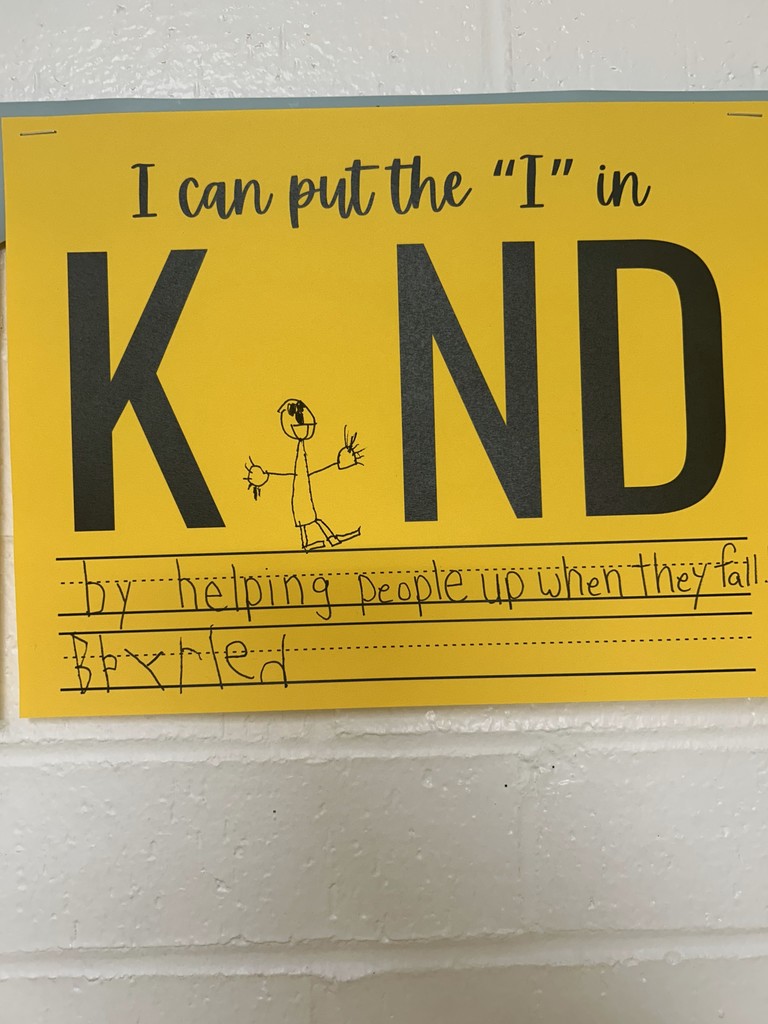 I can put the “I” in
K ND
by helping people up when they fall.